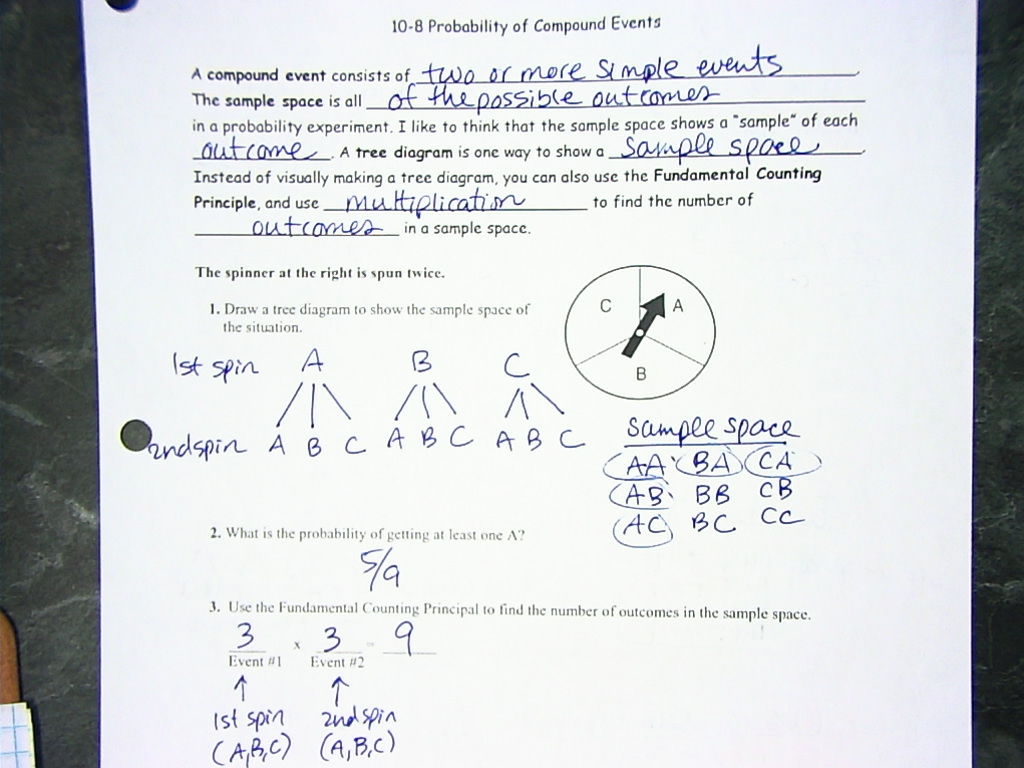 10-8 Probability of Compound Events
A compound event consists of two or more simple events.
The sample space is all of the possible outcomes
in a probability experiment. I like to think that the sample space shows a "sample" of each
outcome. A tree diagram is one way to show a sample space.
Instead of visually making a tree diagram, you can also use the Fundamental Counting
Principle, and use multiplication to find the number of
outcomes in a sample space.
The spinner at the right is spun twice.
1. Draw a tree diagram to show the sample space of
the situation.
C A
B
1st spin A B C
2nd spin A B C A B C A B C
Sample space
AA BA CA
AB BB CB
AC BC CC
2. What is the probability of getting at least one A?
5/9
3. Use the Fundamental Counting Principal to find the number of outcomes in the sample space.
3 x 3 = 9
Event #1 Event #2
↑ ↑
1st spin 2nd spin
(A,B,C) (A,B,C)